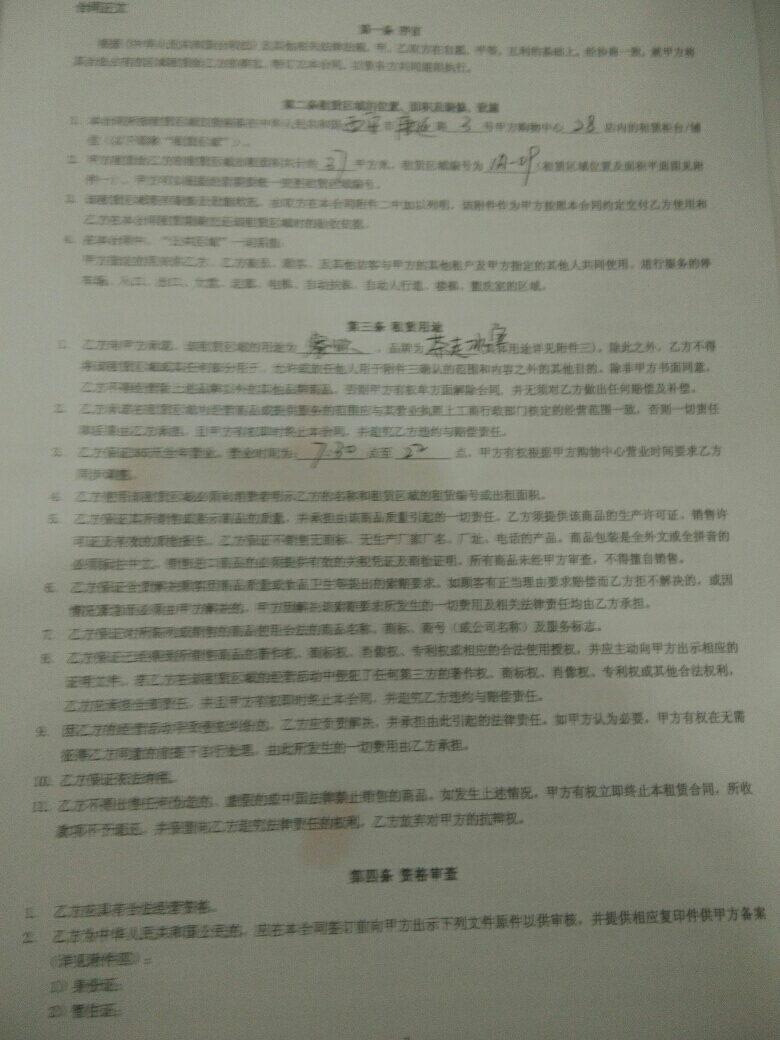 合同正文
第一条 序言
根据《中华人民共和国合同法》及其他相关法律法规，甲、乙双方在自愿、平等、互利的基础上，经协商一致，就甲方将
第二条租赁区域的位置、面积及装修、设施
1. 号甲方购物中心 28 店内的租赁柜台/铺
位（以下简称“租赁区域”）。
2. 27 平方米，租赁区域编号为 1A-09（租赁区域位置及面积平面图见附
件一）。甲方可以根据经营需要统一变更租赁区域编号。
3. 由双方在本合同附件二中加以列明，该附件作为甲方按照本合同约定交付乙方使用和
乙方在本合同租赁期满交还该租赁区域时的验收依据。
4. 在本合同中，“公共区域”一词系指：
甲方指定的现供乙方、乙方雇员、顾客、及其他访客与甲方的其他租户及甲方指定的其他人共同使用、进行服务的停
车场、入口、出口、大堂、走廊、电梯、自动扶梯、自动人行道、楼梯、盥洗室的区域。
第三条 租赁用途
1. 乙方向甲方承诺，该租赁区域的用途为 ，品牌为 （具体用途详见附件三）。除此之外，乙方不得
将该租赁区域或其任何部分用于、允许或放任他人用于附件三确认的范围和内容之外的其他目的，除非甲方书面同意，
乙方不得经营上述品牌以外的其他品牌商品，否则甲方有权单方面解除合同，并无须对乙方做出任何赔偿及补偿。
2. 乙方承诺在租赁区域内经营商品或提供服务的范围应与其营业执照上工商行政部门核定的经营范围一致，否则一切责任
和后果由乙方承担，且甲方有权即时终止本合同，并追究乙方违约与赔偿责任。
3. 乙方保证365天全年营业，营业时间为： 7:30 点至 22 点，甲方有权根据甲方购物中心营业时间要求乙方
同步调整。
4. 乙方使用该租赁区域必须向消费者明示乙方的名称和租赁区域的租赁编号或出租面积。
5. 乙方保证其所销售或展示商品的质量，并承担由该商品质量引起的一切责任。乙方须提供该商品的生产许可证、销售许
可证及有效的质检报告。乙方保证不销售无商标、无生产厂家厂名、厂址、电话的产品。商品包装是全外文或全拼音的
必须标注中文。销售进口商品的必须提供有效的关税凭证及商检证明。所有商品未经甲方审查，不得擅自销售。
6. 乙方保证合理解决顾客因商品质量或食品卫生等提出的索赔要求。如顾客有正当理由要求赔偿而乙方拒不解决的，或因
情况紧急而必须由甲方解决的，甲方因解决该索赔要求所发生的一切费用及相关法律责任均由乙方承担。
7. 乙方保证对所陈列或销售的商品使用合法的商品名称、商标、商号（或公司名称）及服务标志。
8. 乙方保证已经得到所销售商品的著作权、商标权、肖像权、专利权或相应的合法使用授权，并应主动向甲方出示相应的
证明文件。若乙方在该租赁区域的经营活动中侵犯了任何第三方的著作权、商标权、肖像权、专利权或其他合法权利，
乙方应承担全部责任，并且甲方有权即时终止本合同，并追究乙方违约与赔偿责任。
9. 因乙方的经营活动导致侵权纠纷的，乙方应负责解决，并承担由此引起的法律责任。如甲方认为必要，甲方有权在无需
征得乙方同意的前提下自行处理，由此所发生的一切费用由乙方承担。
10. 乙方保证依法纳税。
11. 乙方不得出售任何伪造的、虚假的或中国法律禁止销售的商品。如发生上述情况，甲方有权立即终止本租赁合同，所收
款项不予退还，并保留向乙方追究法律责任的权利，乙方放弃对甲方的抗辩权。
第四条 资格审查
1. 乙方应具有合法经营资格。
2. 乙方为中华人民共和国公民的，应在本合同签订前向甲方出示下列文件原件以供审核，并提供相应复印件供甲方备案
（详见附件四）：
1）身份证；
2）暂住证；